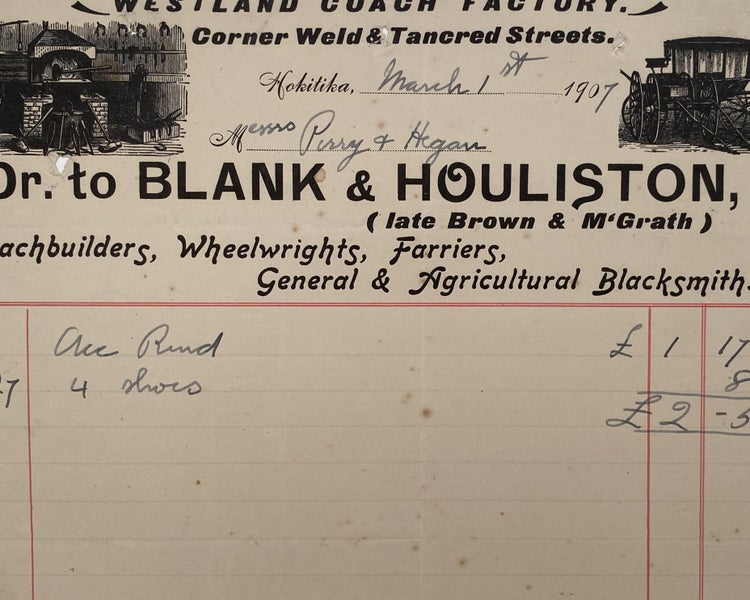 WESTLAND COACH FACTORY.
Corner Weld & Tancred Streets.
Hokitika, March 1st 1907
Messrs Perry & Hegan
Dr. to BLANK & HOULISTON,
( late Brown & M'Grath )
achbuilders, Wheelwrights, Farriers,
General & Agricultural Blacksmith
Acc Rend £ 1 17
7 4 shoes 8
£ 2 - 5